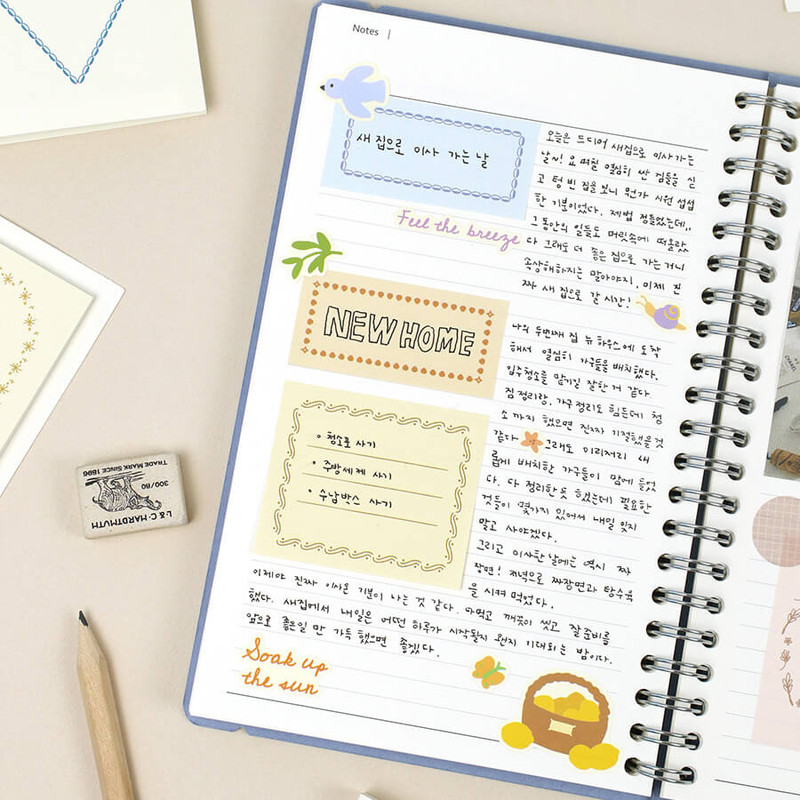 Notes
새 집으로 이사 가는 날
오늘은 드디어 새집으로 이사가는
날~! 요 며칠 열심히 싼 짐들을 싣
고 텅 빈 집을 보니 뭔가 시원 섭섭
한 기분이었다. 제법 정들었는데..
그동안의 일들도 머릿속에 떠올랐
다 그래두 더 좋은 집으로 가는거니
속상해하지는 말아야지. 이제 진
짜 새 집으로 갈 시간!
Feel the breeze
NEW HOME
나의 두번째 집 뉴 하우스에 도착
해서 열심히 가구들을 배치했다.
입주청소를 맡기길 잘한 거 같다
짐정리랑, 가구정리도 힘든데 청
소 까지 했으면 진짜 기절했을것
같다 그래도 이리저리 새
롭게 배치한 가구들이 맘에 들었
다. 다 정리한듯 했는데 필요한
것들이 몇가지 있어서 내일 잊지
말고 사야겠다.
그리고 이사한날에는 역시 짜
장면! 저녁으로 짜장면과 탕수육
을 시켜 먹었다.
청소포 사기
주방세제 사기
수납박스 사기
이제야 진짜 이사온 기분이 나는 것 같다. 다먹고 깨끗이 씻고 잘준비를
했다. 새집에서 내일은 어떤 하루가 시작될지 왠지 기대되는 밤이다.
앞으로 좋은일 만 가득 했으면 좋겠다.
Soak up
the sun
L. & C. HARDTMUTH
300/80
TRADE MARK SINCE 1896